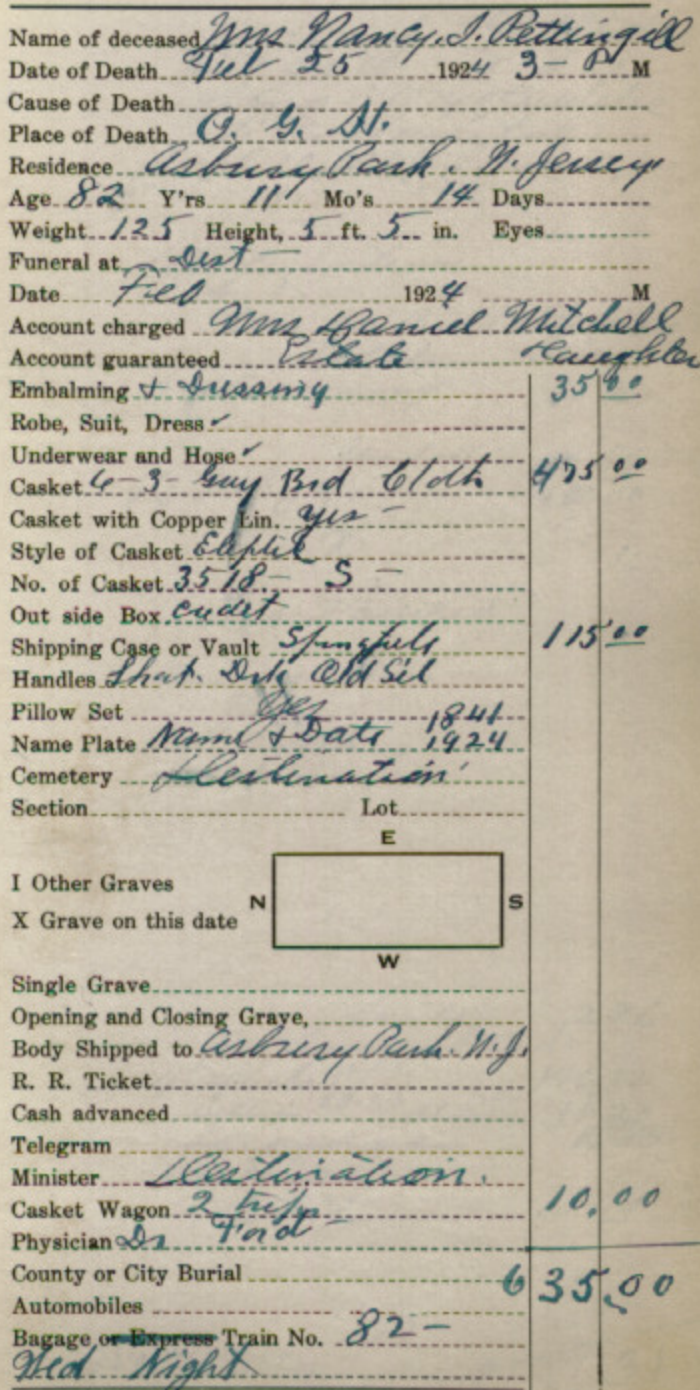 Name of deceased Mrs Nancy. I. Pettingill
Date of Death Feb 25 1924 3- P M
Cause of Death
Place of Death O. G. H.
Residence Asbury Park. N. Jersey
Age 82 Y'rs 11 Mo's 14 Days
Weight 125 Height, 5 ft. 5 in. Eyes
Funeral at Dest -
Date Feb 1924 M
Account charged Mrs Daniel Mitchell
Account guaranteed Estate Daughter
Embalming + Dressing 35 00
Robe, Suit, Dress ✓
Underwear and Hose ✓
Casket 6-3- Gray Brd Cloth 475 00
Casket with Copper Lin. yes -
Style of Casket Eliptic
No. of Casket 3518- S -
Out side Box
Shipping Case or Vault Springfield 115 00
Handles Old Sil
Pillow Set Yes
Name Plate Name + Date 1841 1924
Cemetery Destination
Section Lot
E
I Other Graves
N S
X Grave on this date
W
Single Grave
Opening and Closing Grave,
Body Shipped to Asbury Park. N.J.
R. R. Ticket
Cash advanced
Telegram
Minister Destination.
Casket Wagon 2 trips 10.00
Physician Dr Ford
County or City Burial 635.00
Automobiles
Bagage or Express Train No. 82-
Wed Night